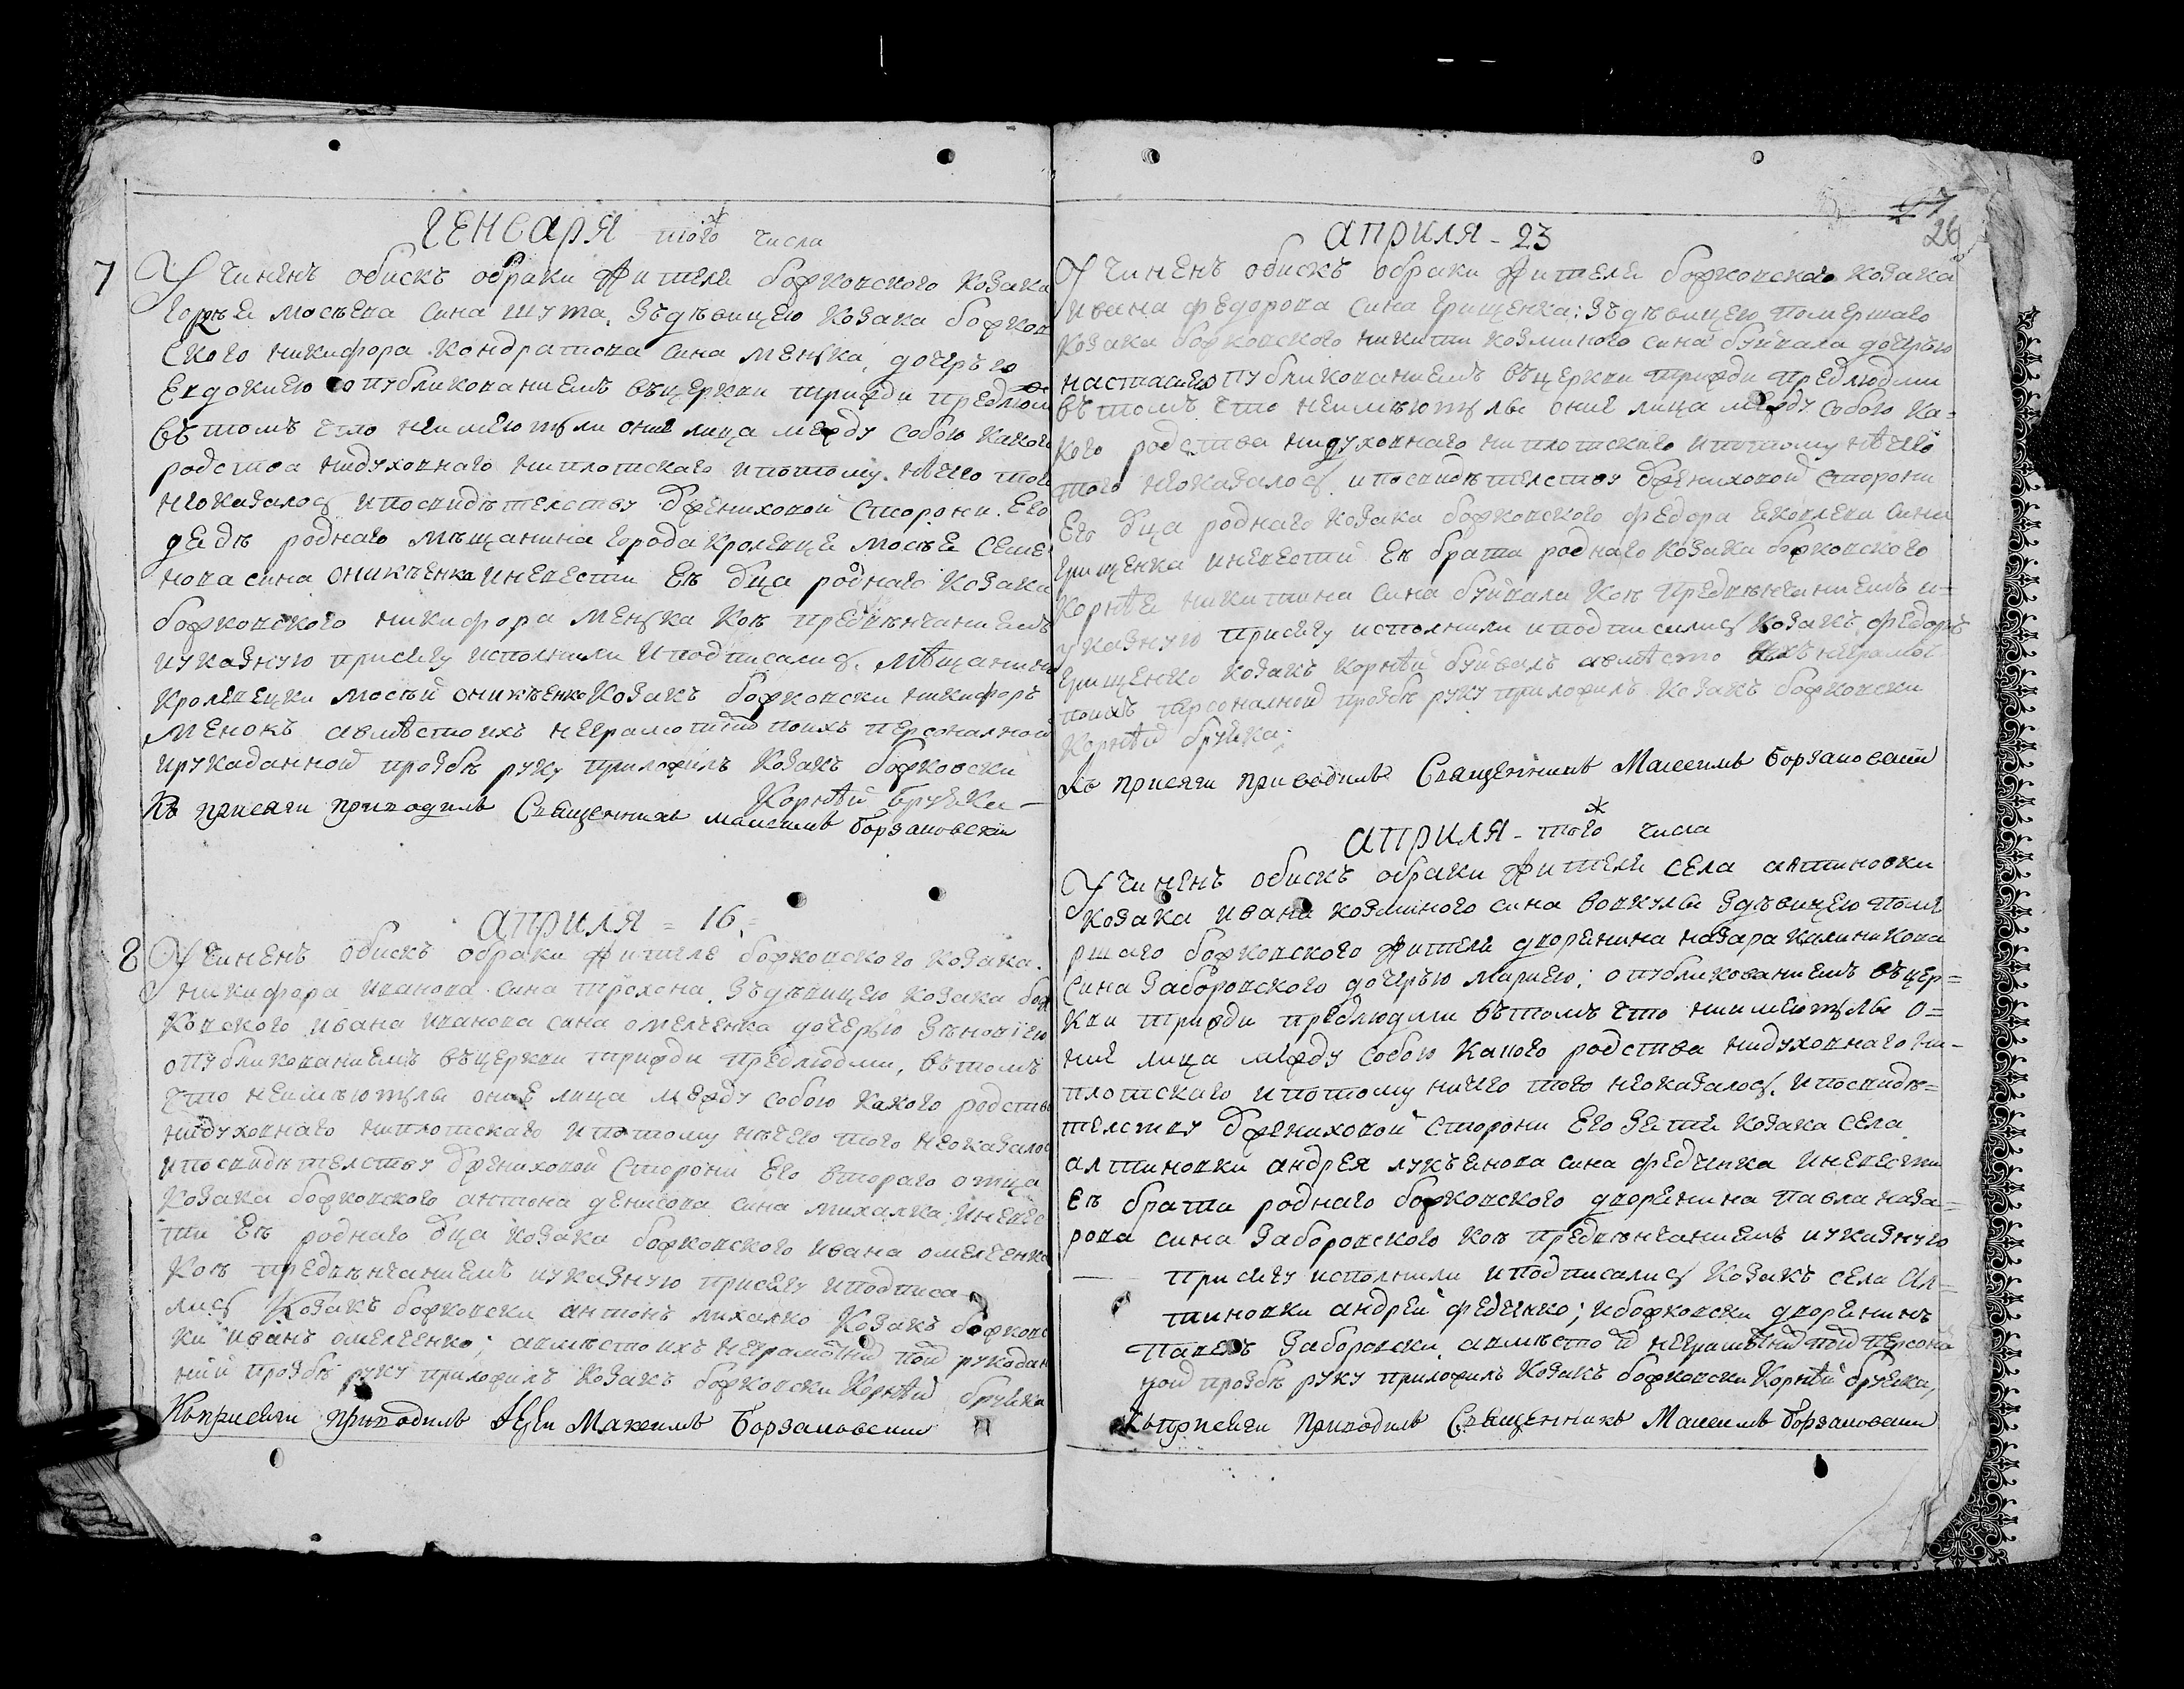 генваря того числа
7 Учиненъ обискъ обраки жителя божковского козака
Горъея мосъева сина шута, зъдъвицею козака божков
ского никифора кондратова сина менька, дочеръю
Евдокиею опубликованиемъ въцеркви трижди предлюдми
въ томъ что неимеютъли оние лица между собою какого
родства нидуховнаго ниплотскаго ипотому нѣчего того
неоказалось ипосвидѣтелству Жениховой сторони Его
деда роднаго мѣщанина города Кролевца Мосъея Семе
нова сина оникъенка иневести Еѣ Отца роднаго козака
божковского никифора Менька Коѣ предвѣнчаниемъ
иуказную присягу исполнили Иподписались Мѣщанинъ
Кролевецки Мосъй оникъенко Козакъ божковски никифоръ
менокъ авмѣсто ихъ неграмотнихъ поихъ персоналной
ирукаданной прозбѣ руку приложилъ Козакъ божковски
Корнѣй Бруйка
Къ присяги приводилъ Священникъ Максимъ Борзаковский
Априля 16
8 Учиненъ обискъ обраки жителя божковского козака
никифора иванова сина трохона зъдѣвицею козака бож
ковского ивана иванова сина омелченка дочерью Зѣновиею
опубликованиемъ въцеркви трижди предлюдми, въ томъ
что неимѣютъли оние лица между собою какого родства
нидуховнаго ниплотскаго ипотому нѣчего того неоказалось
ипосвидѣтелству Жениховой сторони Его второго отца
козака божковского антона денисова сина михалка, иневес
ти Еѣ роднаго Отца козака божковского ивана омелченка
Коѣ предвѣнчаниемъ иуказную присягу иподписа
лись Козакъ божковски антонъ михалко Козакъ божковс
ки иванъ омелченко; авмѣсто ихъ неграмотнихъ поихъ рукодан
ний прозбѣ руку приложилъ козакъ божковски Корнѣй бруйка
Къ присяги приводилъ Максимъ Борзаковский
27
26
априля - 23
Учиненъ обискъ обраки жителя божковскаго козака
ивана федорова сина грищенка: зъдѣвицею помершаго
козака божковского никити козминого сина буйвала дочерью
настасиею опубликованиемъ въцеркви трижди предлюдми
въ томъ что неимѣютъли оние лица между собою ка-
кого родства нидуховнаго ниплотскаго ипотому нѣчего
того неоказалось ипосвидѣтелству Жениховой сторони
Его Отца роднаго козака божковского федора яковлева сина
грищенка иневести Еѣ брата роднаго козака божковского
корнѣя никитина сина буйвала Коѣ предвѣнчаниемъ и-
указную присягу исполнили иподписались Козакъ федоръ
грищенко козакъ корнѣй буйвалъ авмѣсто ихъ неграмот
поихъ персоналной прозбѣ руку приложилъ Козакъ божковски
Корнѣй бруйка:
Къ присяги приводилъ Священникъ Максимъ Борзаковский
априля - того числа
Учиненъ обискъ обраки жителя села алтиновки
козака ивана козминого сина вовкули здѣвицею поме
ршаго божковского жителя дворенина назара калиникова
сина заборовского дочерью Мариею: опубликованиемъ въцер=
кви трижди предлюдми въ томъ что неимеютъли о=
ние лица между собою какого родства нидуховнаго ни-
плотскаго ипотому ничего того неоказалось, ипосвидѣ=
телству Жениховой сторони Его зятя козака села
алтиновки андрея лукъянова сина федченка иневести
Еѣ брата роднаго божковского дворенина павла наза=
рова сина заборовского Коѣ предвѣнчаниемъ иуказную
присягу исполнили иподписались Козакъ села ал=
тиновки андрей федченко; ибожковски дворенинъ
Павелъ заборовски авмѣсто ихъ неграмотнихъ поихъ персона
ной прозбѣ руку приложилъ козакъ божковски Корнѣй бруйка,
Къ присяги приводилъ Священникъ Максимъ Борзаковский